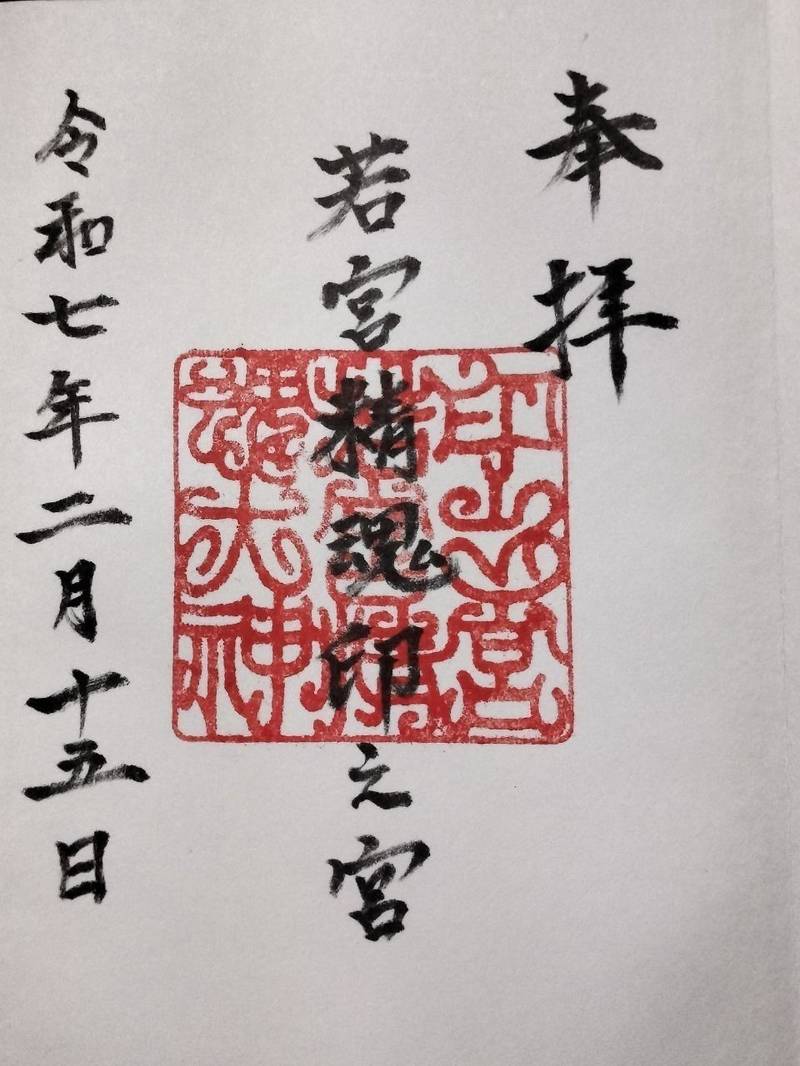 奉拝
若宮精魂印之宮
令和七年二月十五日